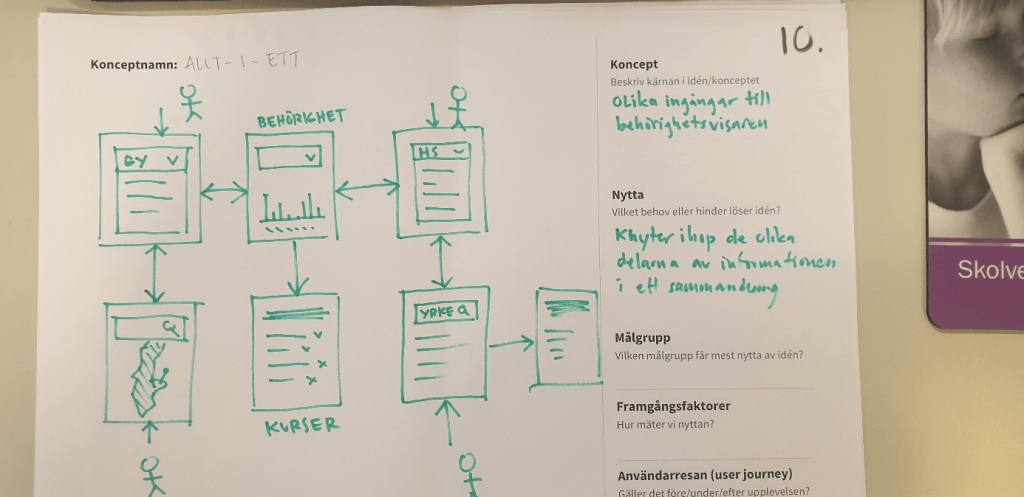 10.
Konceptnamn: ALLT-I-ETT
BEHÖRIGHET
GY
HS
YRKE
KURSER
Koncept
Beskriv kärnan i idén/konceptet
Olika ingångar till
behörighetsvisaren
Nytta
Vilket behov eller hinder löser idén?
Knyter ihop de olika
delarna av informationen
i ett sammanhang
Målgrupp
Vilken målgrupp får mest nytta av idén?
Framgångsfaktorer
Hur mäter vi nyttan?
Användarresan (user journey)
Gäller det före/under/efter upplevelsen?
Skolve